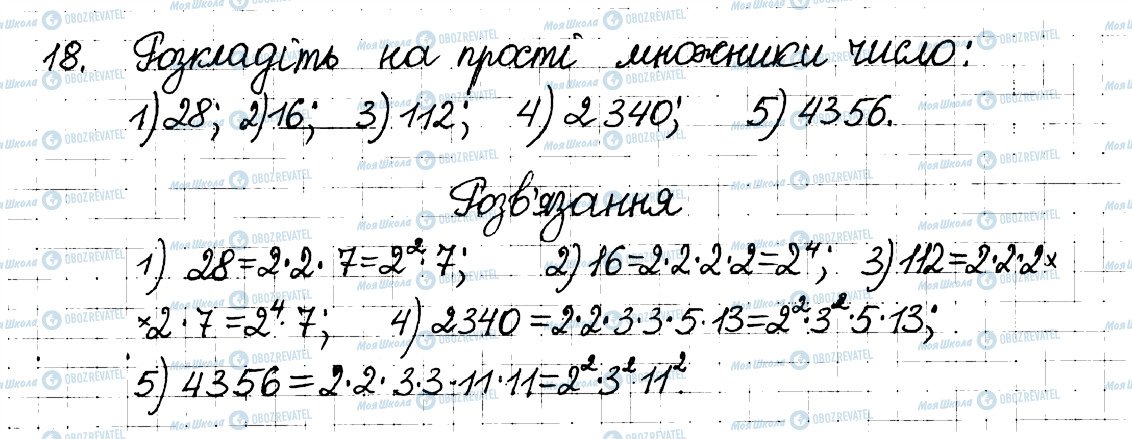 18. Розкладіть на прості множники число:
1) 28; 2) 16; 3) 112; 4) 2 340; 5) 4356.
Розв'язання
1) 28=2·2·7=2²·7; 2) 16=2·2·2·2=2⁴; 3) 112=2·2·2×
×2·7=2⁴·7; 4) 2340=2·2·3·3·5·13=2²·3²·5·13;
5) 4356=2·2·3·3·11·11=2²·3²·11².